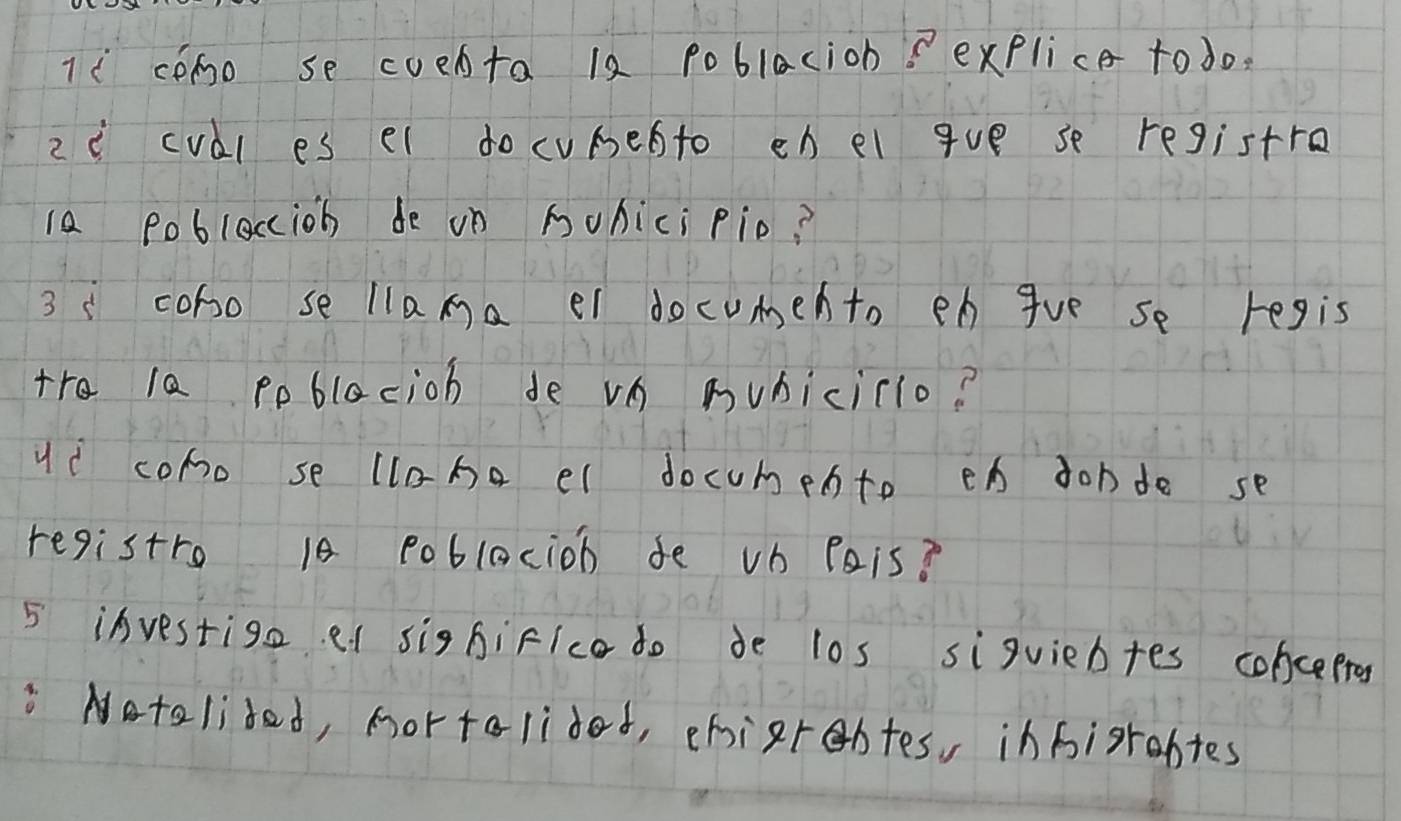 1¿ cómo se cuenta la poblacion? explica todo.
2¿ cuál es el documento en el que se registra
la poblaccioń de un municipio?
3¿ como se llama el documento en que se regis
tra la población de un municipio?
4¿ como se llama el documento en donde se
registra la población de un pais?
5 investiga el significado de los siguientes conceptos
: Natalidad, mortalidad, emigrantes, inmigrantes